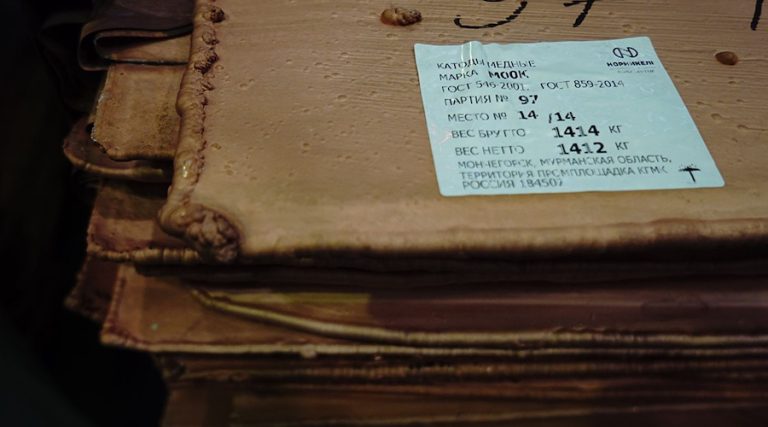 97
НОРНИКЕЛЬ
КАТОДЫ МЕДНЫЕ
МАРКА М00К
ГОСТ 546-2001, ГОСТ 859-2014
ПАРТИЯ № 97
МЕСТО № 14 /14
ВЕС БРУТТО 1414 КГ
ВЕС НЕТТО 1412 КГ
МОНЧЕГОРСК, МУРМАНСКАЯ ОБЛАСТЬ,
ТЕРРИТОРИЯ ПРОМПЛОЩАДКА КГМК
РОССИЯ 184507